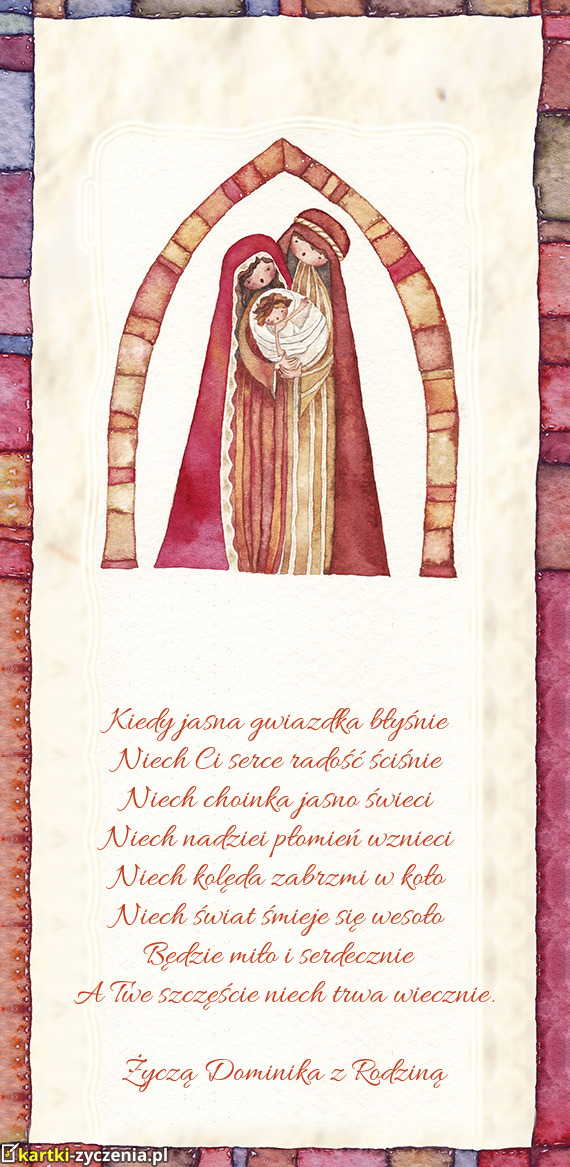 Kiedy jasna gwiazdka błyśnie
Niech Ci serce radość ściśnie
Niech choinka jasno świeci
Niech nadziei płomień wznieci
Niech kolęda zabrzmi w koło
Niech świat śmieje się wesoło
Będzie miło i serdecznie
A Twe szczęście niech trwa wiecznie.
Życzą Dominika z Rodziną
kartki-zyczenia.pl